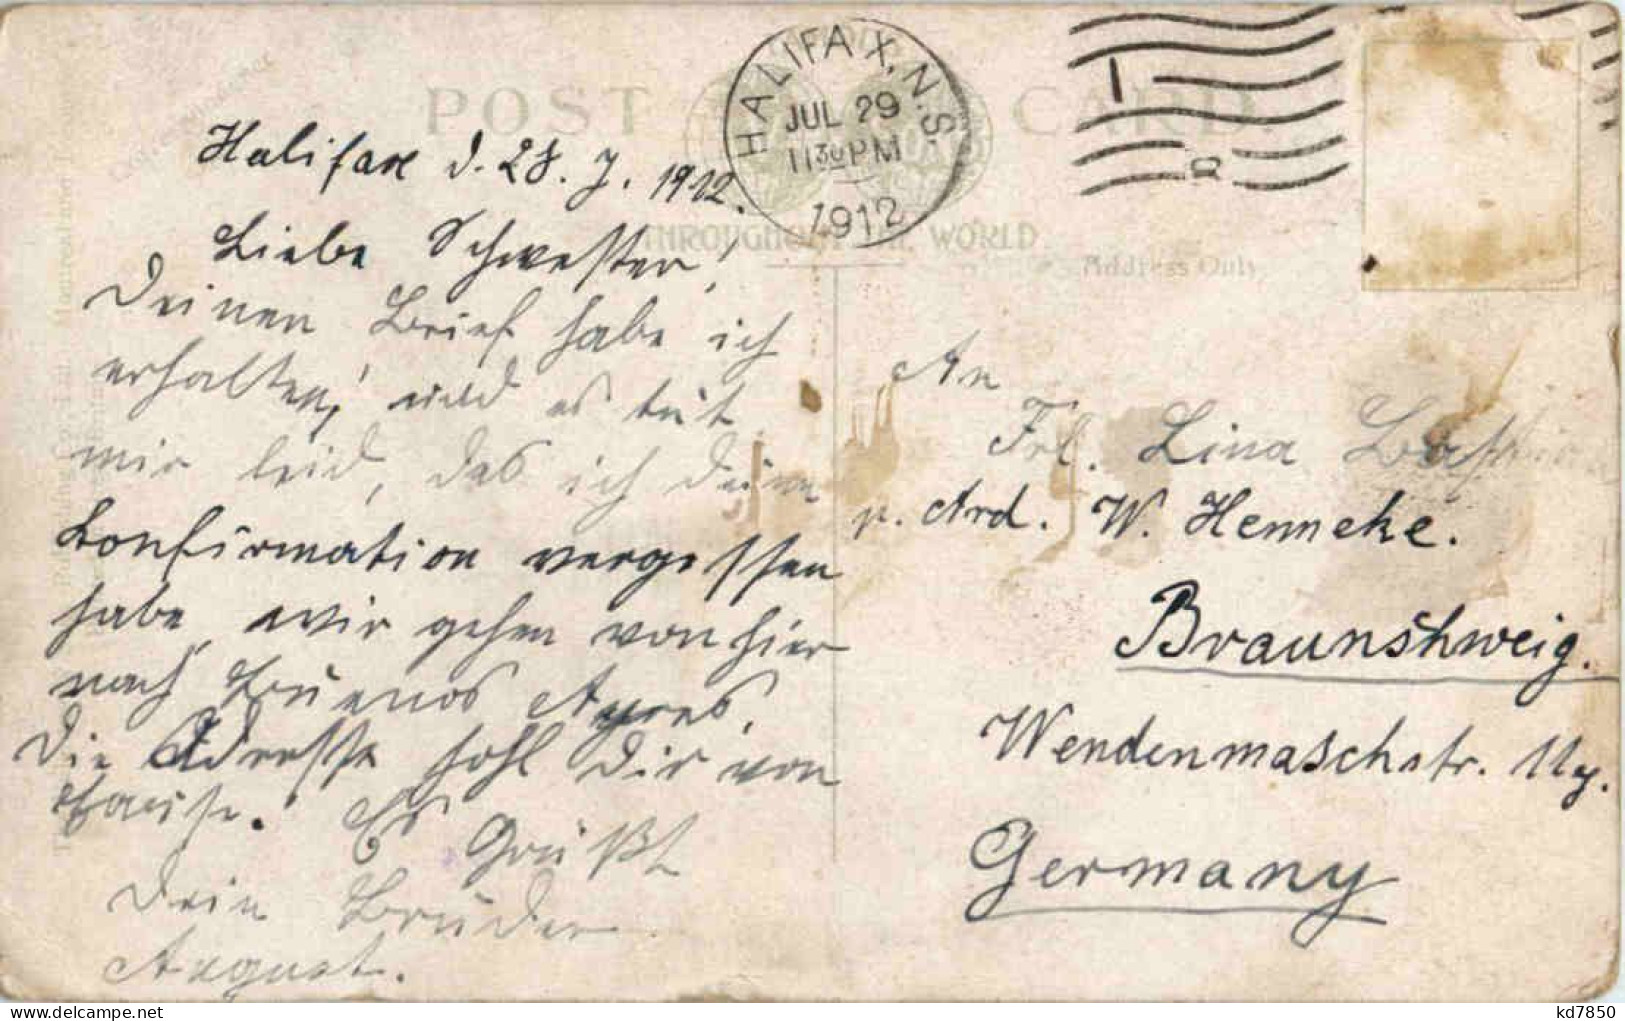 POST CARD.
HALIFAX, N.S.
JUL 29
11 30 PM
1912
THROUGHOUT THE WORLD
Address Only
Halifax d. 28. 7. 1912.
Liebe Schwester!
Deinen Brief habe ich
erhalten, und es tut
mir leid, das ich Deine
Konfirmation vergessen
habe, wir gehen von hier
nach Buenos Ayres.
Die Adresse hohl Dir von
Hause. Es Grüßt
Dein Bruder
August.
An
Frl. Lina
p. Ard. W. Henneke.
Braunshweig.
Wendenmaschstr. 11
Germany
kd7850